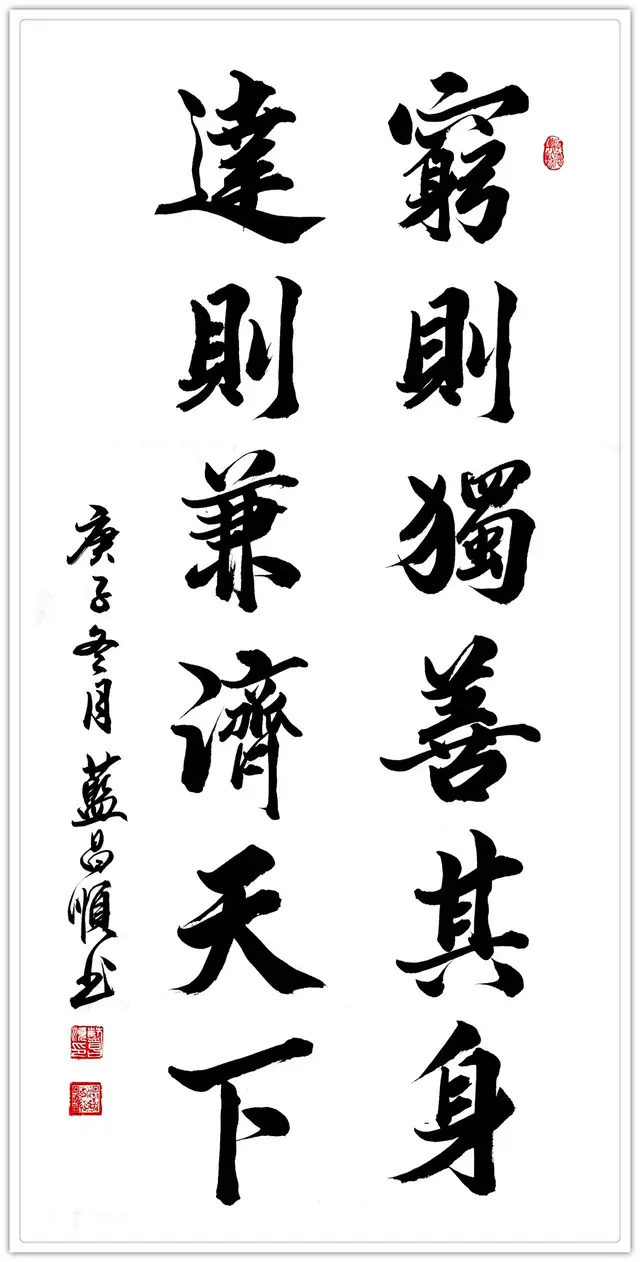 窮則獨善其身
達則兼濟天下
庚子冬月藍昌順书